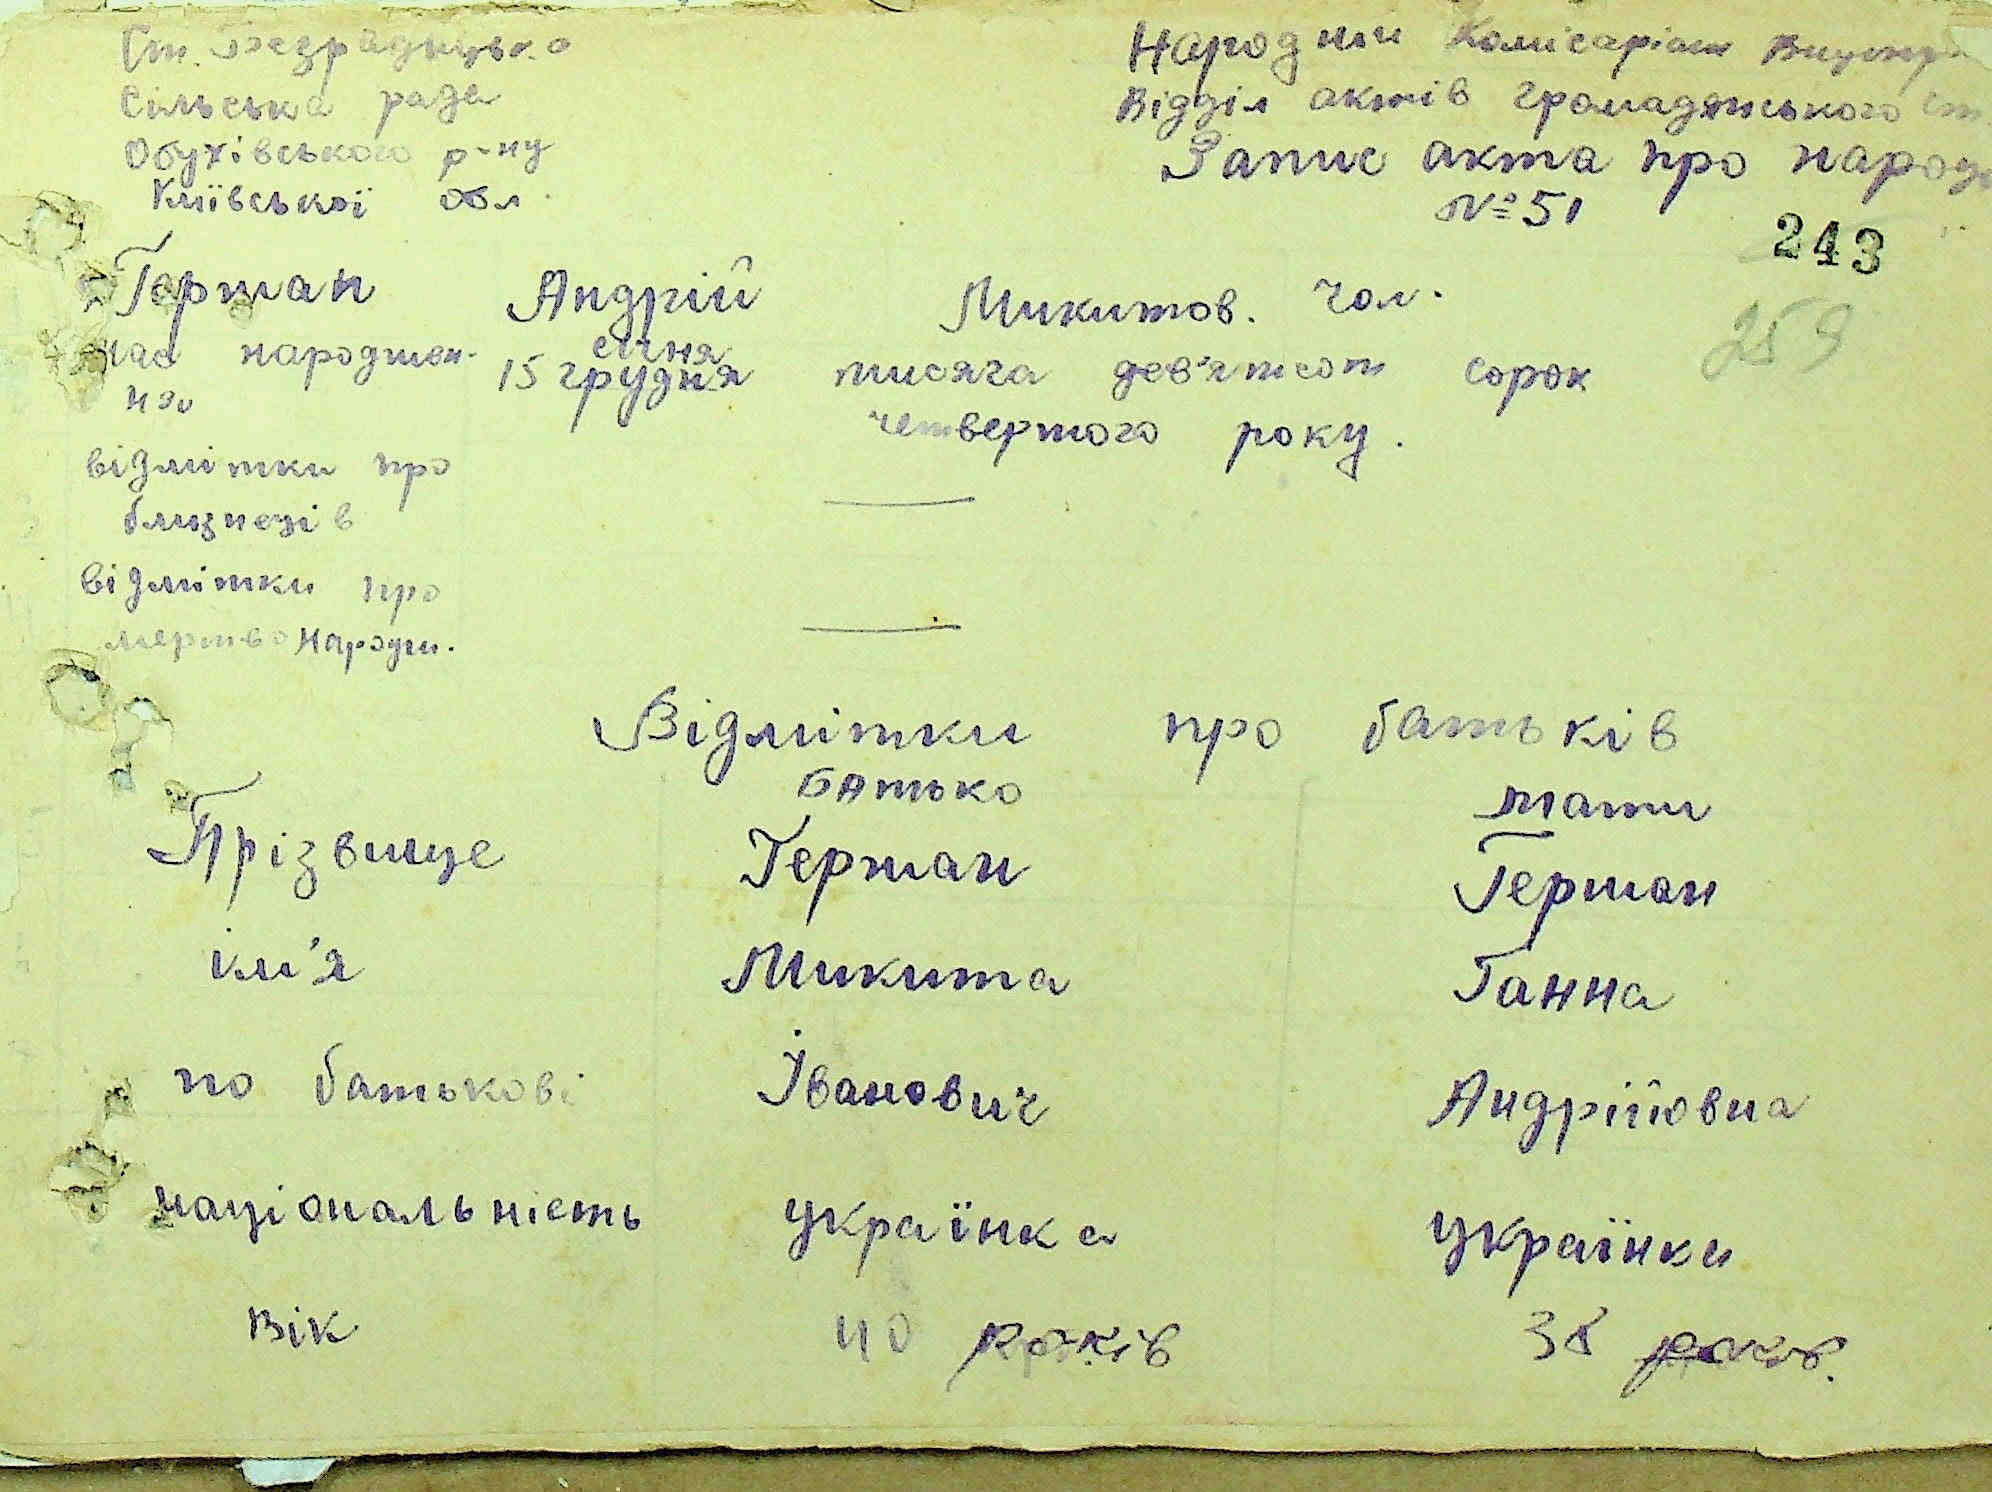 Ст. Безрадицька
Сільська рада
Обухівського р-ну
Київської обл.
Народний Комісаріат Внутр
Відділ актів громадянського ст.
Запис акта про народж
№ 51
243
259
Герман Андрій Микитов. Чол.
січня
час народжен- 15 грудня тисяча дев'ятсот сорок
ня четвертого року.
відмітки про
близнеців
відмітки про
мертвонародж.
Відмітки про батьків
Батько мати
Прізвище Герман Герман
ім'я Микита Ганна
по батькові Іванович Андріївна
національність українка українка
вік 40 років 38 років.